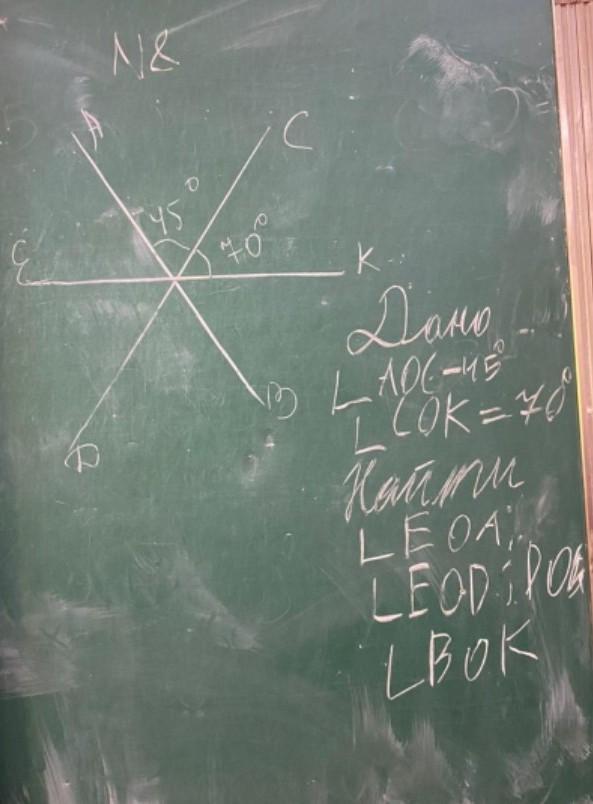 N8
A
C
45°
70°
E
K
B
D
Дано
∟AOC-45°
∟COK=70°
Найти
∟EOA;
∟EOD;
∟BOK